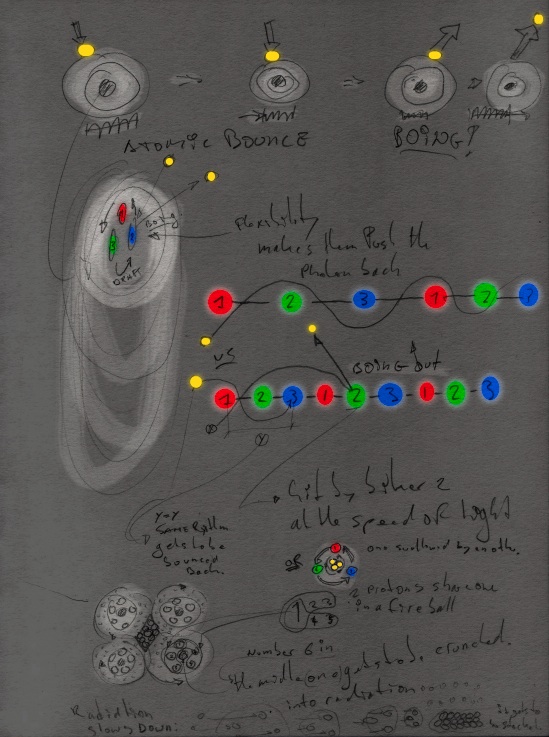 ATOMIC BOUNCE
BOING!
1
2
3
BOING
DRAFT
Flexibility
makes them Push the
Photon back
1 2 3 1 2 ?
VS
BOING Out
1 2 3 1 2 3 1 2 3
X
Y
Hit by either 2
at the speed of light
YvY
SAME Rythm
gets to be
bounced
Back
OR
one swallowed by another.
2 protons share one
in a fire ball
1 2 3
4 5
Number 6 in
the middle one gets to be crunched.
into radiation
Radiation
slows Down:
It gets
to be